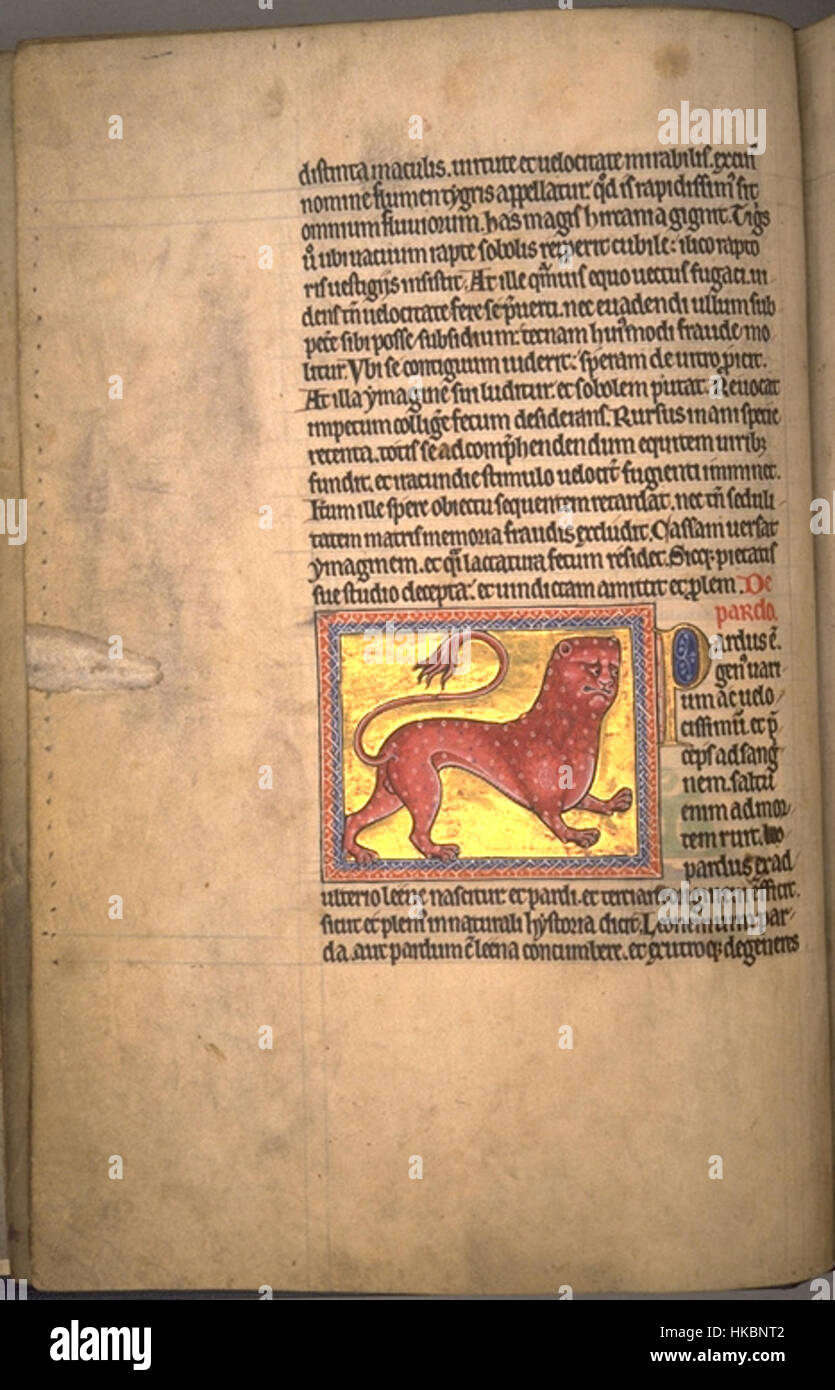 distincta maculis. uirtute et uelocitate mirabilis. ex cuiꝰ
nomine flumen tygris appellatur. qd̓ is rapidissimꝰ sit
omnium fluuiorum. has magis hircania gignit. Tigͥs
ů ubi uacuum rapte sobolis reperit cubile: ilico rapto
ris uestigiis insistit. At ille qͣmuis equo uectus fugaci. ui
dens tñ uelocitate fere se p̃uerti. nec euadendi ullum sub
petẽ sibi posse subsidium: tecnam huiꝰmodi fraude mo
litur. Vbi se contiguum uiderit: speram de uitro ꝓicit.
At illa ymagine sui luditur. et sobolem putat. Reuocat
impetum colligẽ fetum desiderans. Rursus inani specie
retenta. totis se ad comp̃hendendum equitem uirib;
fundit. et iracundie stimulo uelocit̃ fugienti imminet.
Itum ille spere obiectu sequentem retardat. nec tñ seduli
tatem matris memoria fraudis excludit. Cassam uersat
ymaginem. et qͣi lactatura fetum residet. Sicq; pietatis
sue studio decepta: et uindictam amittit et ꝓlem. De
pardo.
Pardus ẽ
genꝰ uari
um ac uelo
cissimũ. et p̃
ceps ad sang
nem. saltu
enim ad mor
tem ruit. leo
pardus ex ad
ulterio leene nascitur et pardi. et terciam originem efficit.
sicut et pleniꝰ in naturali hystoria dicit. Leonem cum par
da. aut pardum cũ leena concumbere. et ex utroq; degeneres
a
alamy
alamy
Image ID: HKBNT2
www.alamy.com